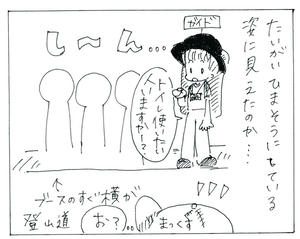 たいがい ひまそうにしている
姿に見えたのか・・・・
ガイド
し〜ん...
トイレ使いたい
人いますかー?
ブースのすぐ横が
登山道
お?
まっくす